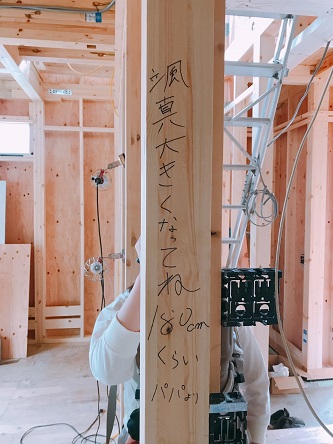 颯真大きくなってね
180cm
くらい
パパより